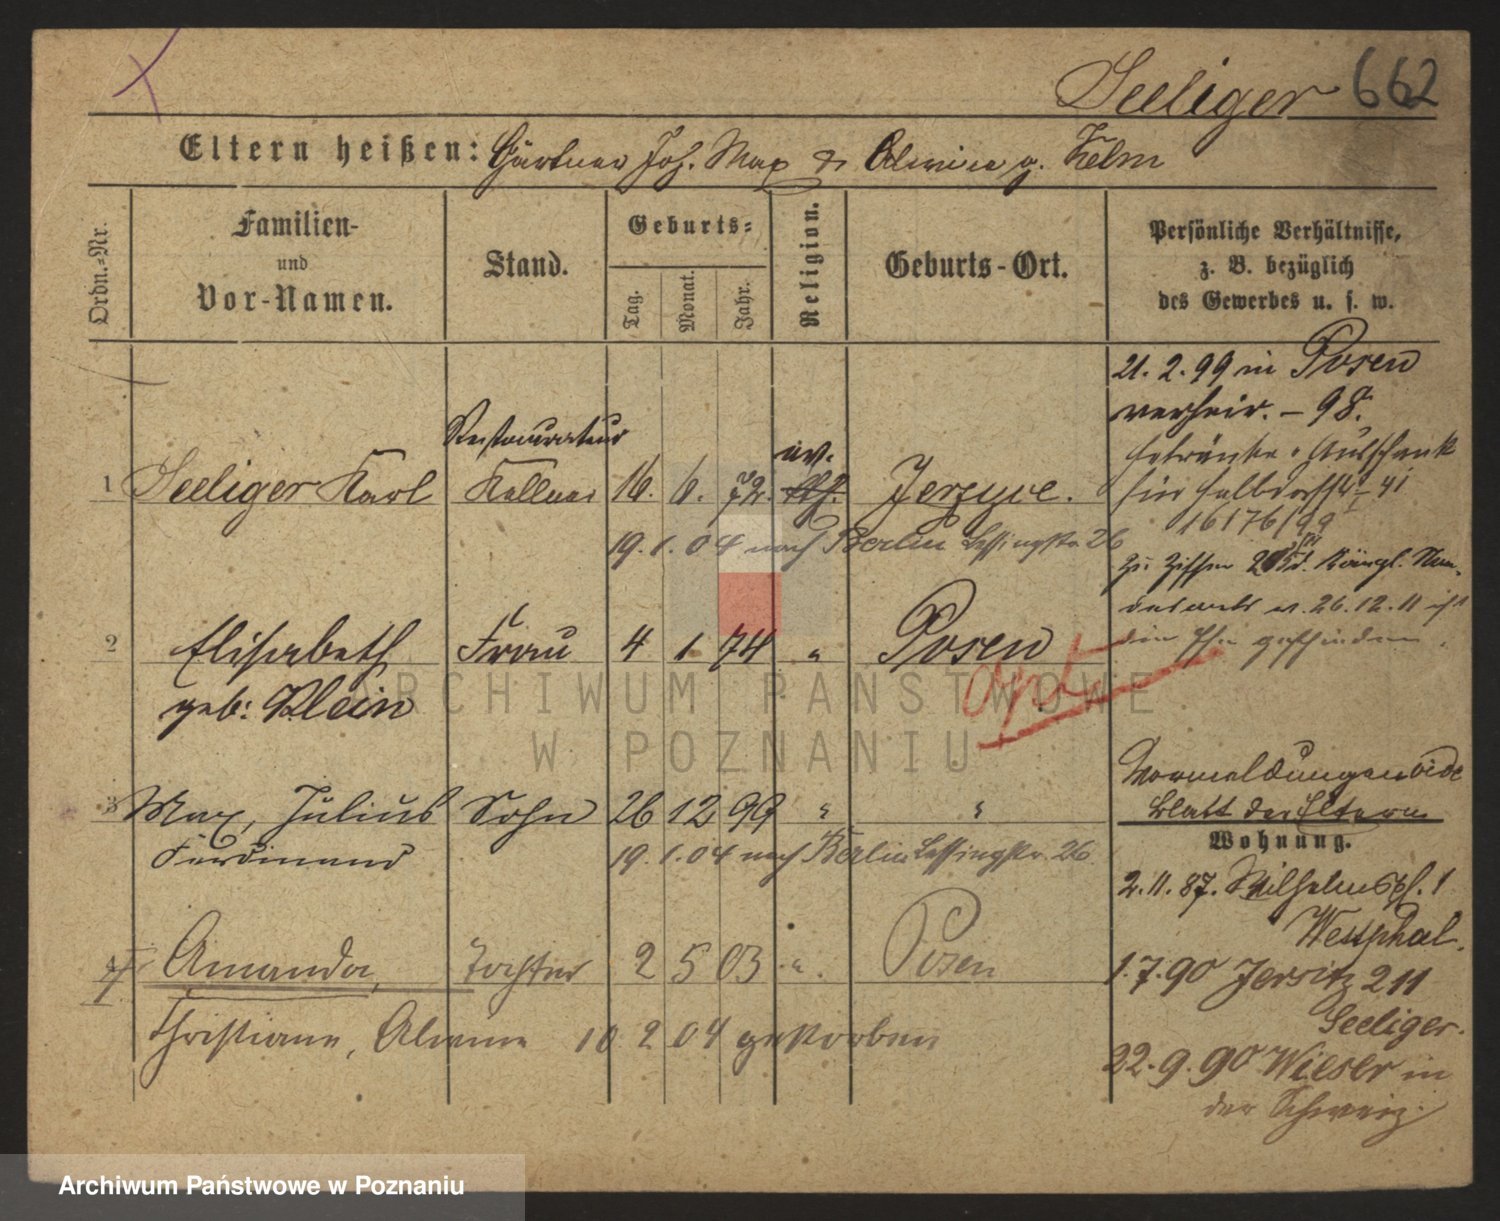 Seeliger 662
Eltern heißen: Gärtner Joh. Max & Alwine g. Kelm
Ordn.-Nr.
Familien-
und
Vor-Namen.
Stand.
Geburts-
Tag.
Monat.
Jahr.
Religion.
Geburts-Ort.
Persönliche Verhältnisse,
z. B. bezüglich
des Gewerbes u. s. w.
21. 2. 99 in Posen
verheir. – 98.
Restaurateur
ev.
1 Seeliger Karl Kellner 16. 6. 72. Jerzyce.
Getränke Ausschank
für
16176/99
19. 1. 04 nach Berlin Lessingstr. 26
zu Ziffer
26.12.11 ist
die Ehe geschieden
2 Elisabeth Frau 4 1. 74 " Posen
geb: Klein
opt
ARCHIWUM PAŃSTWOWE
W POZNANIU
Vormeldungen vide
Blatt der Eltern
3 Max, Julius Sohn 26 12 99 " "
Ferdinand
19. 1. 04 nach Berlin Lessingstr. 26.
Wohnung.
2. 11. 87. Wilhelmspl. 1
Westphal.
4 Amanda, Tochter 2 5 03 " Posen
1. 7. 90 Jersitz 211
Seeliger.
Christiane, Alwine 10 2 04 gestorben
22. 9. 90 Wieser in
der Schweiz.
Archiwum Państwowe w Poznaniu